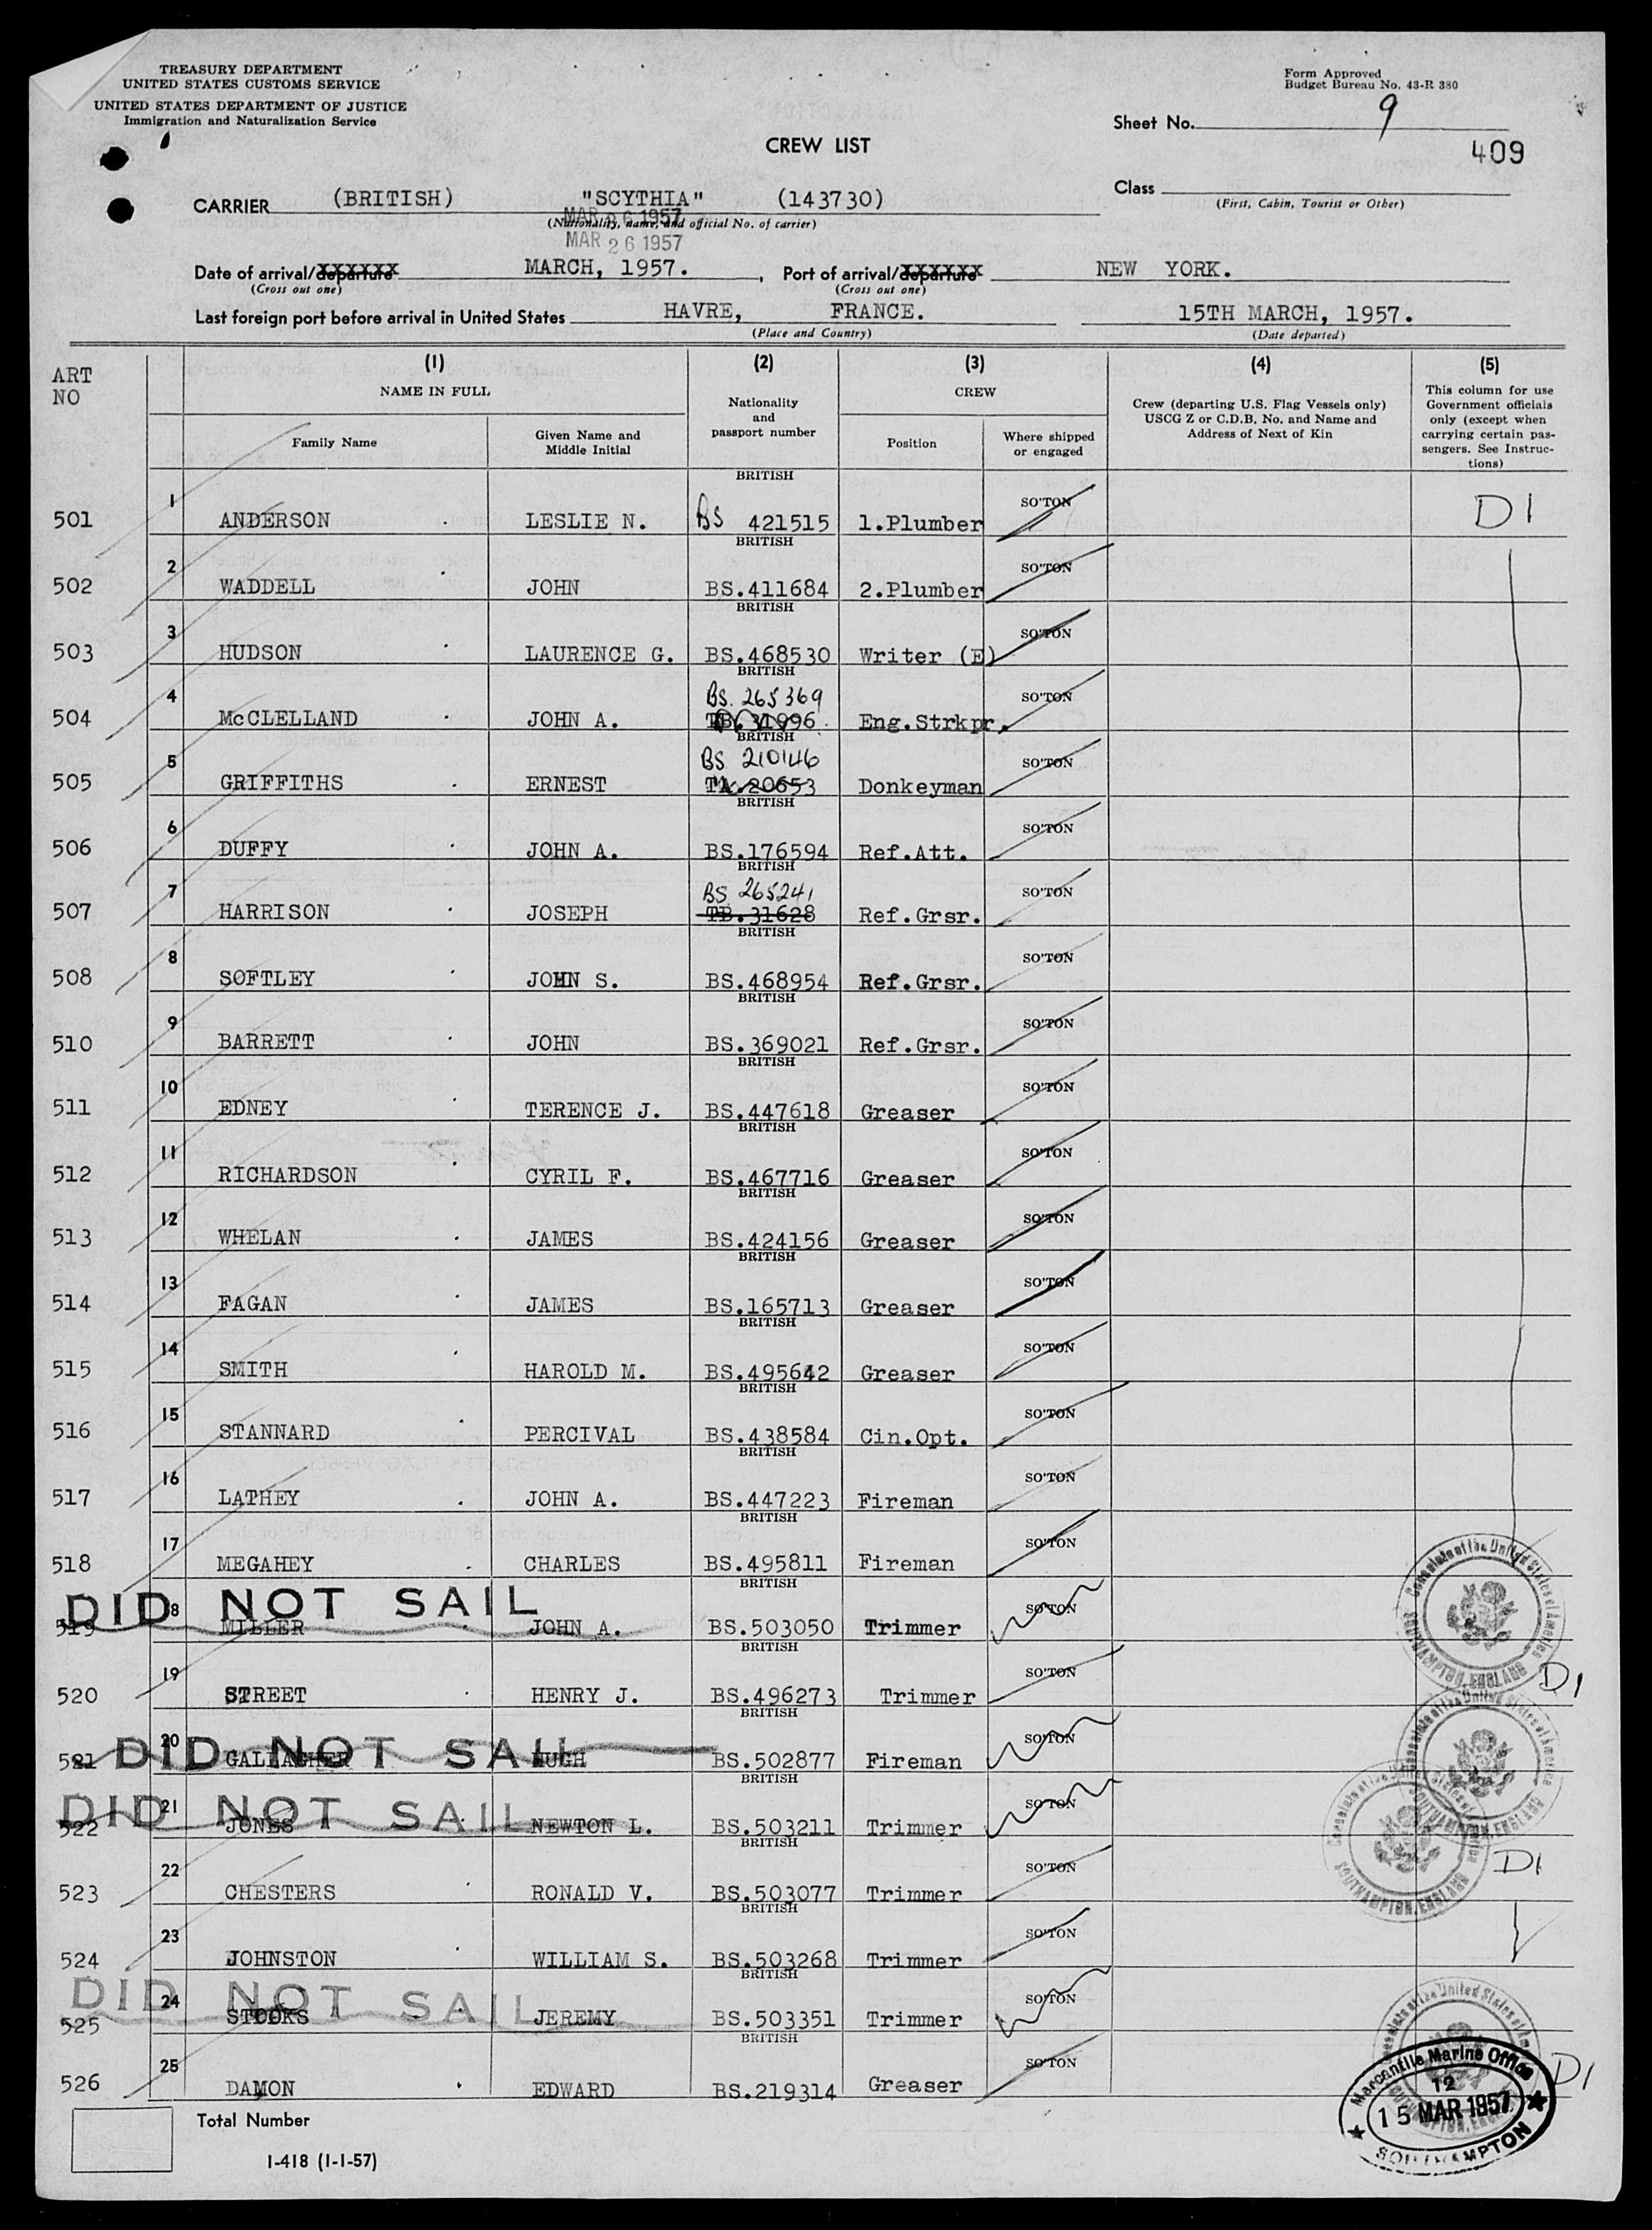 TREASURY DEPARTMENT
UNITED STATES CUSTOMS SERVICE
UNITED STATES DEPARTMENT OF JUSTICE
Immigration and Naturalization Service
Form Approved
Budget Bureau No. 43-R 380
Sheet No. 9
409
CREW LIST
Class
(First, Cabin, Tourist or Other)
CARRIER (BRITISH) "SCYTHIA" (143730)
MAR 26 1957
(Nationality, name, and official No. of carrier)
MAR 26 1957
Date of arrival/departure MARCH, 1957. , Port of arrival/departure NEW YORK.
(Cross out one) (Cross out one)
Last foreign port before arrival in United States HAVRE, FRANCE. 15TH MARCH, 1957.
(Place and Country) (Date departed)
ART
NO
(1) (2) (3) (4) (5)
NAME IN FULL
Family Name
Given Name and
Middle Initial
Nationality
and
passport number
CREW
Position
Where shipped
or engaged
Crew (departing U.S. Flag Vessels only)
USCG Z or C.D.B. No. and Name and
Address of Next of Kin
This column for use
Government officials
only (except when
carrying certain pas-
sengers. See Instruc-
tions)
BRITISH
501 1 ANDERSON LESLIE N. BS 421515 1.Plumber SO'TON D1
BRITISH
502 2 WADDELL JOHN BS.411684 2.Plumber SO'TON
BRITISH
503 3 HUDSON LAURENCE G. BS.468530 Writer (E) SO'TON
BRITISH
BS. 265369
504 4 McCLELLAND JOHN A. TB.31996. Eng.Strkpr. SO'TON
BRITISH
BS 210146
505 5 GRIFFITHS ERNEST TA.20653 Donkeyman SO'TON
BRITISH
506 6 DUFFY JOHN A. BS.176594 Ref.Att. SO'TON
BRITISH
BS 265241
507 7 HARRISON JOSEPH TB.31628 Ref.Grsr. SO'TON
BRITISH
508 8 SOFTLEY JOHN S. BS.468954 Ref.Grsr. SO'TON
BRITISH
510 9 BARRETT JOHN BS.369021 Ref.Grsr. SO'TON
BRITISH
511 10 EDNEY TERENCE J. BS.447618 Greaser SO'TON
BRITISH
512 11 RICHARDSON CYRIL F. BS.467716 Greaser SO'TON
BRITISH
513 12 WHELAN JAMES BS.424156 Greaser SO'TON
BRITISH
514 13 FAGAN JAMES BS.165713 Greaser SO'TON
BRITISH
515 14 SMITH HAROLD M. BS.495642 Greaser SO'TON
BRITISH
516 15 STANNARD PERCIVAL BS.438584 Cin.Opt. SO'TON
BRITISH
517 16 LATHEY JOHN A. BS.447223 Fireman SO'TON
BRITISH
518 17 MEGAHEY CHARLES BS.495811 Fireman SO'TON
BRITISH
DID NOT SAIL
519 18 MILLER JOHN A. BS.503050 Trimmer SO'TON
Consulate of the United States of America SOUTHAMPTON, ENGLAND
BRITISH
520 19 STREET HENRY J. BS.496273 Trimmer SO'TON D1
BRITISH
DID NOT SAIL
521 20 GALLAGHER HUGH BS.502877 Fireman SO'TON
Consulate of the United States of America SOUTHAMPTON, ENGLAND
BRITISH
DID NOT SAIL
522 21 JONES NEWTON L. BS.503211 Trimmer SO'TON
Consulate of the United States of America SOUTHAMPTON, ENGLAND
BRITISH
523 22 CHESTERS RONALD V. BS.503077 Trimmer SO'TON D1
BRITISH
524 23 JOHNSTON WILLIAM S. BS.503268 Trimmer SO'TON
BRITISH
DID NOT SAIL
525 24 STOOKS JEREMY BS.503351 Trimmer SO'TON
BRITISH
526 25 DAMON EDWARD BS.219314 Greaser SO'TON D1
Mercantile Marine Office
12
15 MAR 1957
SOUTHAMPTON
Total Number
I-418 (1-1-57)